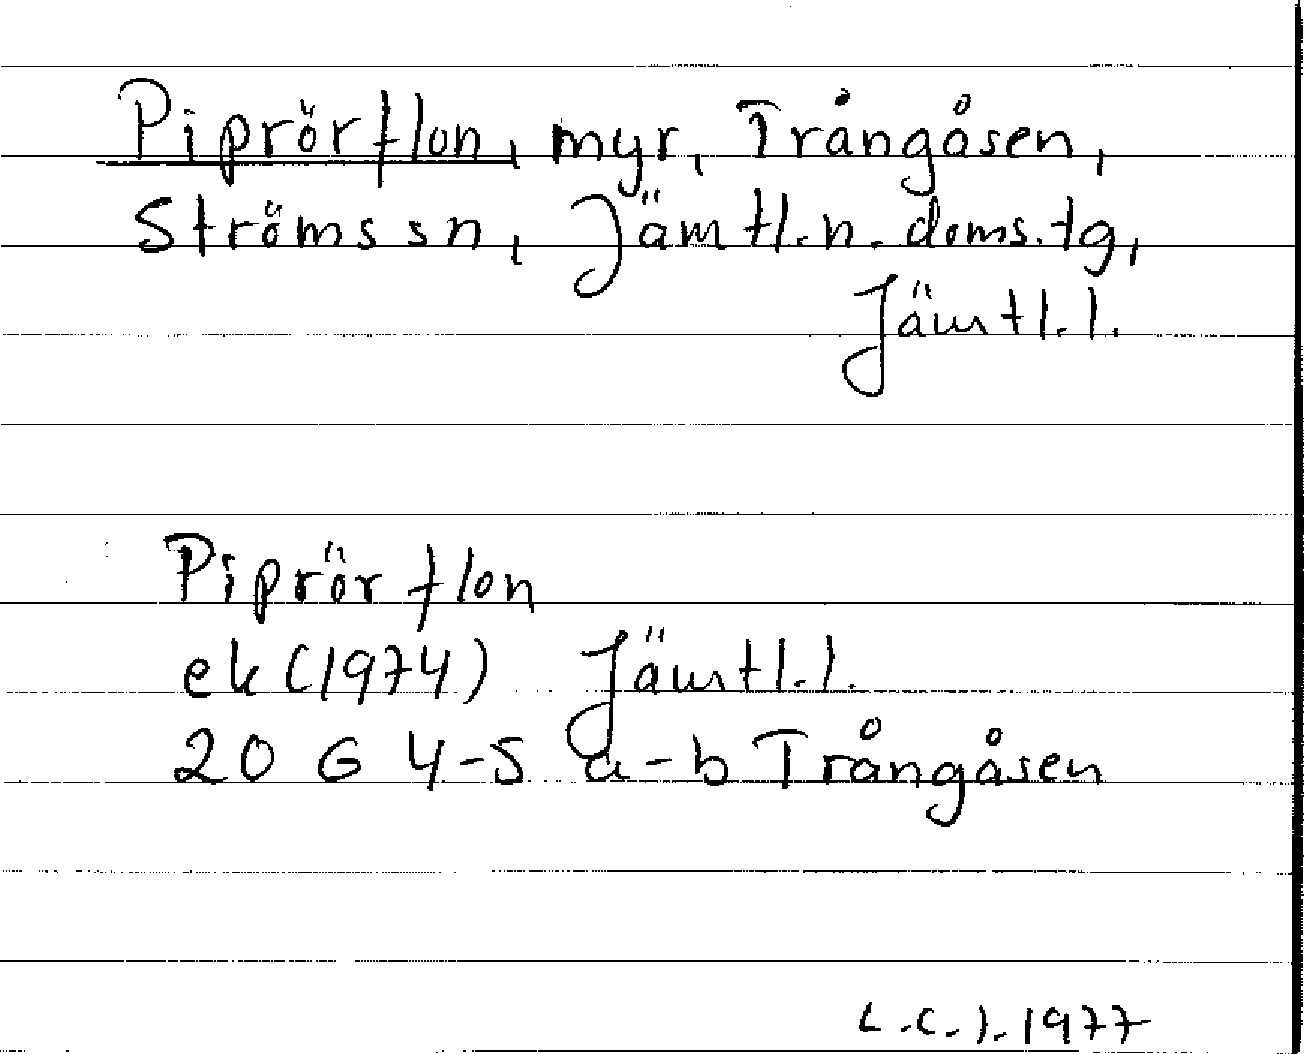 Piprörflon, myr, Trångåsen,
Ströms sn, Jämtl.n. doms.tg,
Jämtl.l.
Piprörflon
ek (1974) Jämtl.l.
20 G 4-5 a-b Trångåsen
L.C.J. 1977